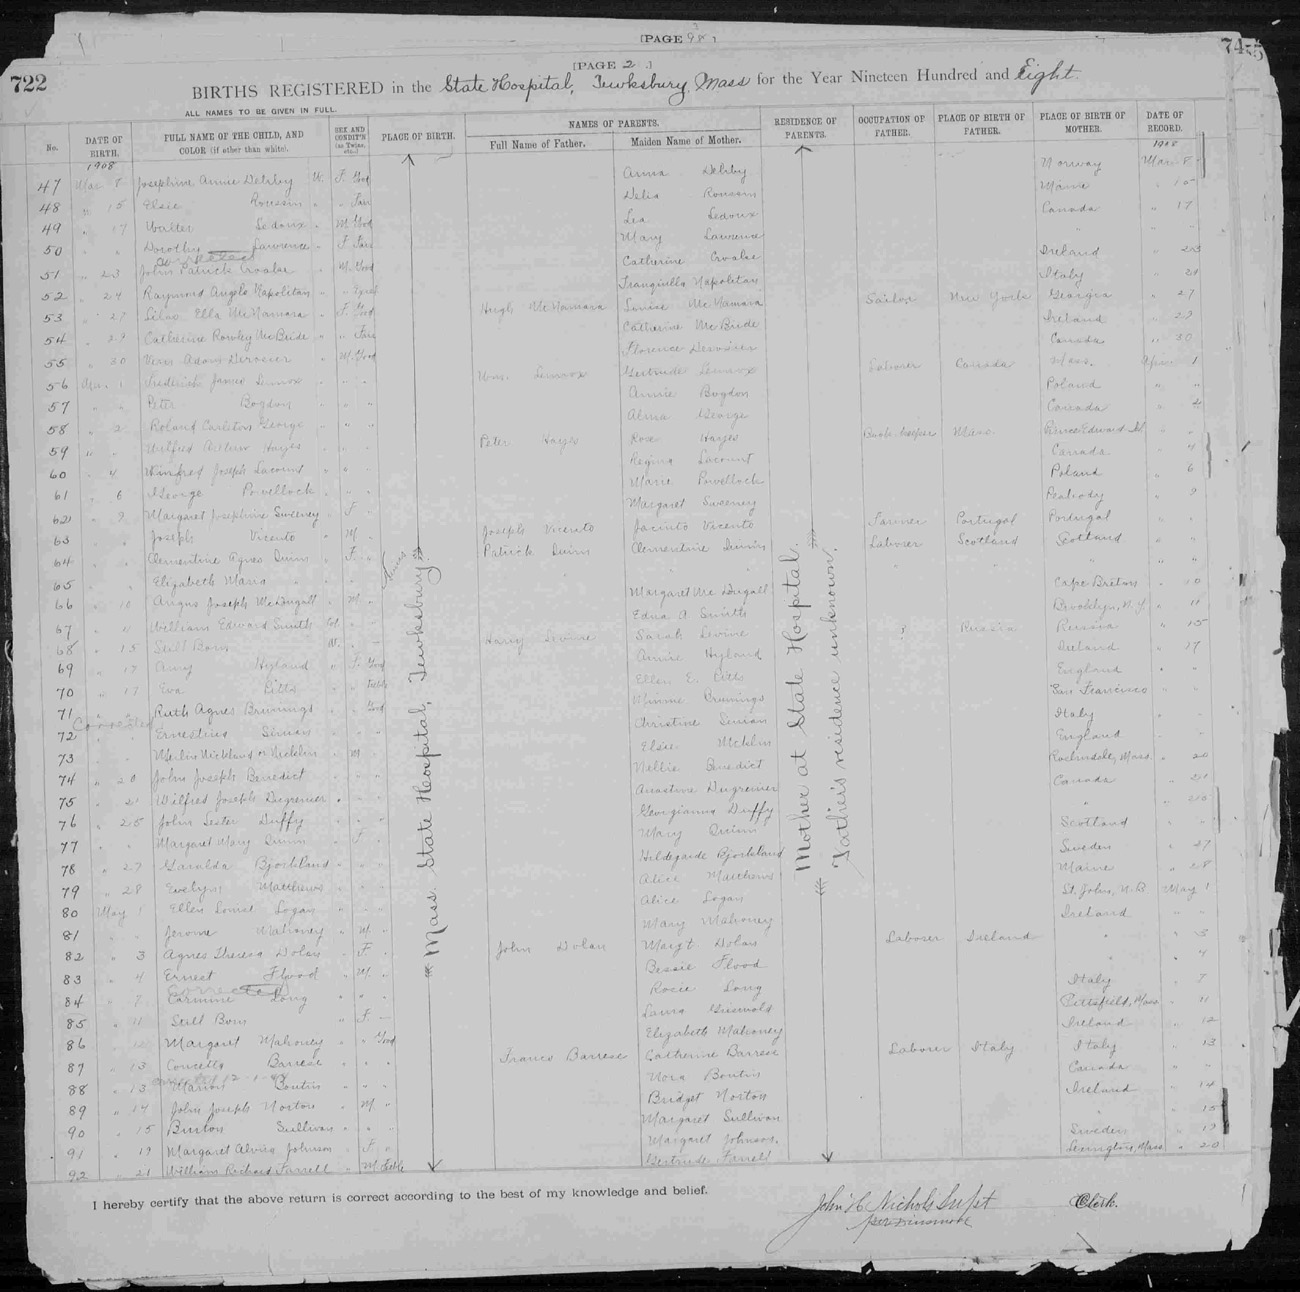 [PAGE 98]
722
745
[PAGE 2.]
BIRTHS REGISTERED in the State Hospital, Tewksbury, Mass for the Year Nineteen Hundred and Eight.
ALL NAMES TO BE GIVEN IN FULL.
No. DATE OF BIRTH. FULL NAME OF THE CHILD, AND COLOR (if other than white). SEX AND CONDIT'N (as Twins, etc.,) PLACE OF BIRTH. NAMES OF PARENTS. Full Name of Father. Maiden Name of Mother. RESIDENCE OF PARENTS. OCCUPATION OF FATHER. PLACE OF BIRTH OF FATHER. PLACE OF BIRTH OF MOTHER. DATE OF RECORD.
1908 1908
47 Mar 8 Josephine Annie Delsby W. F. Good Anna Delsby Norway Mar 8
48 " 15 Elsie Roussin " " Fair Delia Roussin Maine " 15
49 " 17 Walter Ledoux " M. Good Lea Ledoux Canada " 17
50 " " Dorothy Lawrence " F. Fair Mary Lawrence " " "
51 " 23 John Patrick Croake " M. Good Catherine Croake Ireland " 23
52 " 24 Raymond Angelo Napolitan " " Tranquilla Napolitan Italy " 24
53 " 27 Ella McNamara " F. Good Hugh McNamara Louise McNamara Sailor New York Georgia " 27
54 " 29 Catherine Rowley McBride " " Fair Catherine McBride Ireland " 29
55 " 30 Adam Derosier " M. Good Florence Derosier Canada " 30
56 Apr. 1 Frederick James Lennox " " " Wm. Lennox Gertrude Lennox Laborer Canada Mass. April 1
57 " " Peter Bogdon " " " Annie Bogdon Poland " "
58 " 2 Roland Carleton George " " " Alma George Canada " 2
59 " " Wilfred Arthur Hayes " " " Peter Hayes Rose Hayes Book-keeper Mass Prince Edward Isl " "
60 " 4 Winfred Joseph Lacount " " Regina Lacount Canada " 4
61 " 6 George Powellock " " " Marie Powellock Poland " 6
62 " 9 Margaret Josephine Sweeney " F. Margaret Sweeney Peabody " 9
63 " " Joseph Vicento " M " Joseph Vicento Jacinto Vicento Farmer Portugal Portugal " "
64 " " Clementine Agnes Quinn " F. " Twins Patrick Quinn Clementine Quinn Laborer Scotland Scotland " "
65 " " Elizabeth Maria " " " " " " " " " "
66 " 10 Angus Joseph McDugall " M " Margaret McDugall Cape Breton " 10
67 " 11 William Edward Smith Col. " Edna A Smith Brooklyn, N.Y. " 11
68 " 15 Still Born W. " Harry Levine Sarah Levine ? Russia Russia " 15
69 " 17 Amy Hyland " F. Good Annie Hyland Ireland " 17
70 " 17 Eva Pitts " " Feeble Ellen E. Pitts England " "
71 " " Ruth Agnes Brunings " " Good Minnie Brunings San Francisco " "
Corrected
72 " " Ernestina Simian " " " Christine Simian Italy " "
73 " " Nicklin or Nicklin " M " Elsie England " "
74 " 20 John Joseph Benedict " " " Nellie Benedict Roslindale, Mass. " 20
75 " 21 Wilfred Joseph Dugrenier " " " Dugrenier Canada " 21
76 " 25 John Lester Duffy " " " Georgianna Duffy " " 25
77 " " Margaret Mary Quinn " F " Mary Quinn Scotland "
78 " 27 Garalda Bjorkland " " " Hildegarde Bjorkland Sweden " 27
79 " 28 Evelyn Matthews " " " Alice Matthews Maine " 28
80 May 1 Ellen Logan " " " Alice Logan St. John, N.B. May 1
81 " " Jerome Mahoney " M. " Mary Mahoney Ireland " "
82 " 3 Agnes Theresa Dolan " F " John Dolan Margt Dolan Laborer Ireland " " 3
83 " 4 Ernest Flood " M. " Bessie Flood " " 4
Corrected
84 " 7 Carmine Long " " " Rosie Long Italy " 7
85 " 11 Still Born " F. — Laura Griswold Pittsfield, Mass " 11
86 " 12 Margaret Mahoney " " Good Elizabeth Mahoney Ireland " 12
87 " 13 Concetta Barrese " " " Franco Barrese Catherine Barrese Laborer Italy Italy " 13
88 " 13 Marion Boutin " " " Nora Boutin Canada " "
89 " 14 John Joseph Norton " M " Bridget Norton Ireland " 14
90 " 15 Burton Sullivan " " " Margaret Sullivan " " 15
91 " 19 Margaret Alvina Johnson " F " Margaret Johnson Sweden " 19
92 " 21 William Richard Farrell " M Feeble Gertrude Farrell Lexington, Mass " 20
Mass. State Hospital, Tewksbury.
Mother at State Hospital.
Father's residence unknown.
I hereby certify that the above return is correct according to the best of my knowledge and belief.
John H Nichols Supt Clerk.